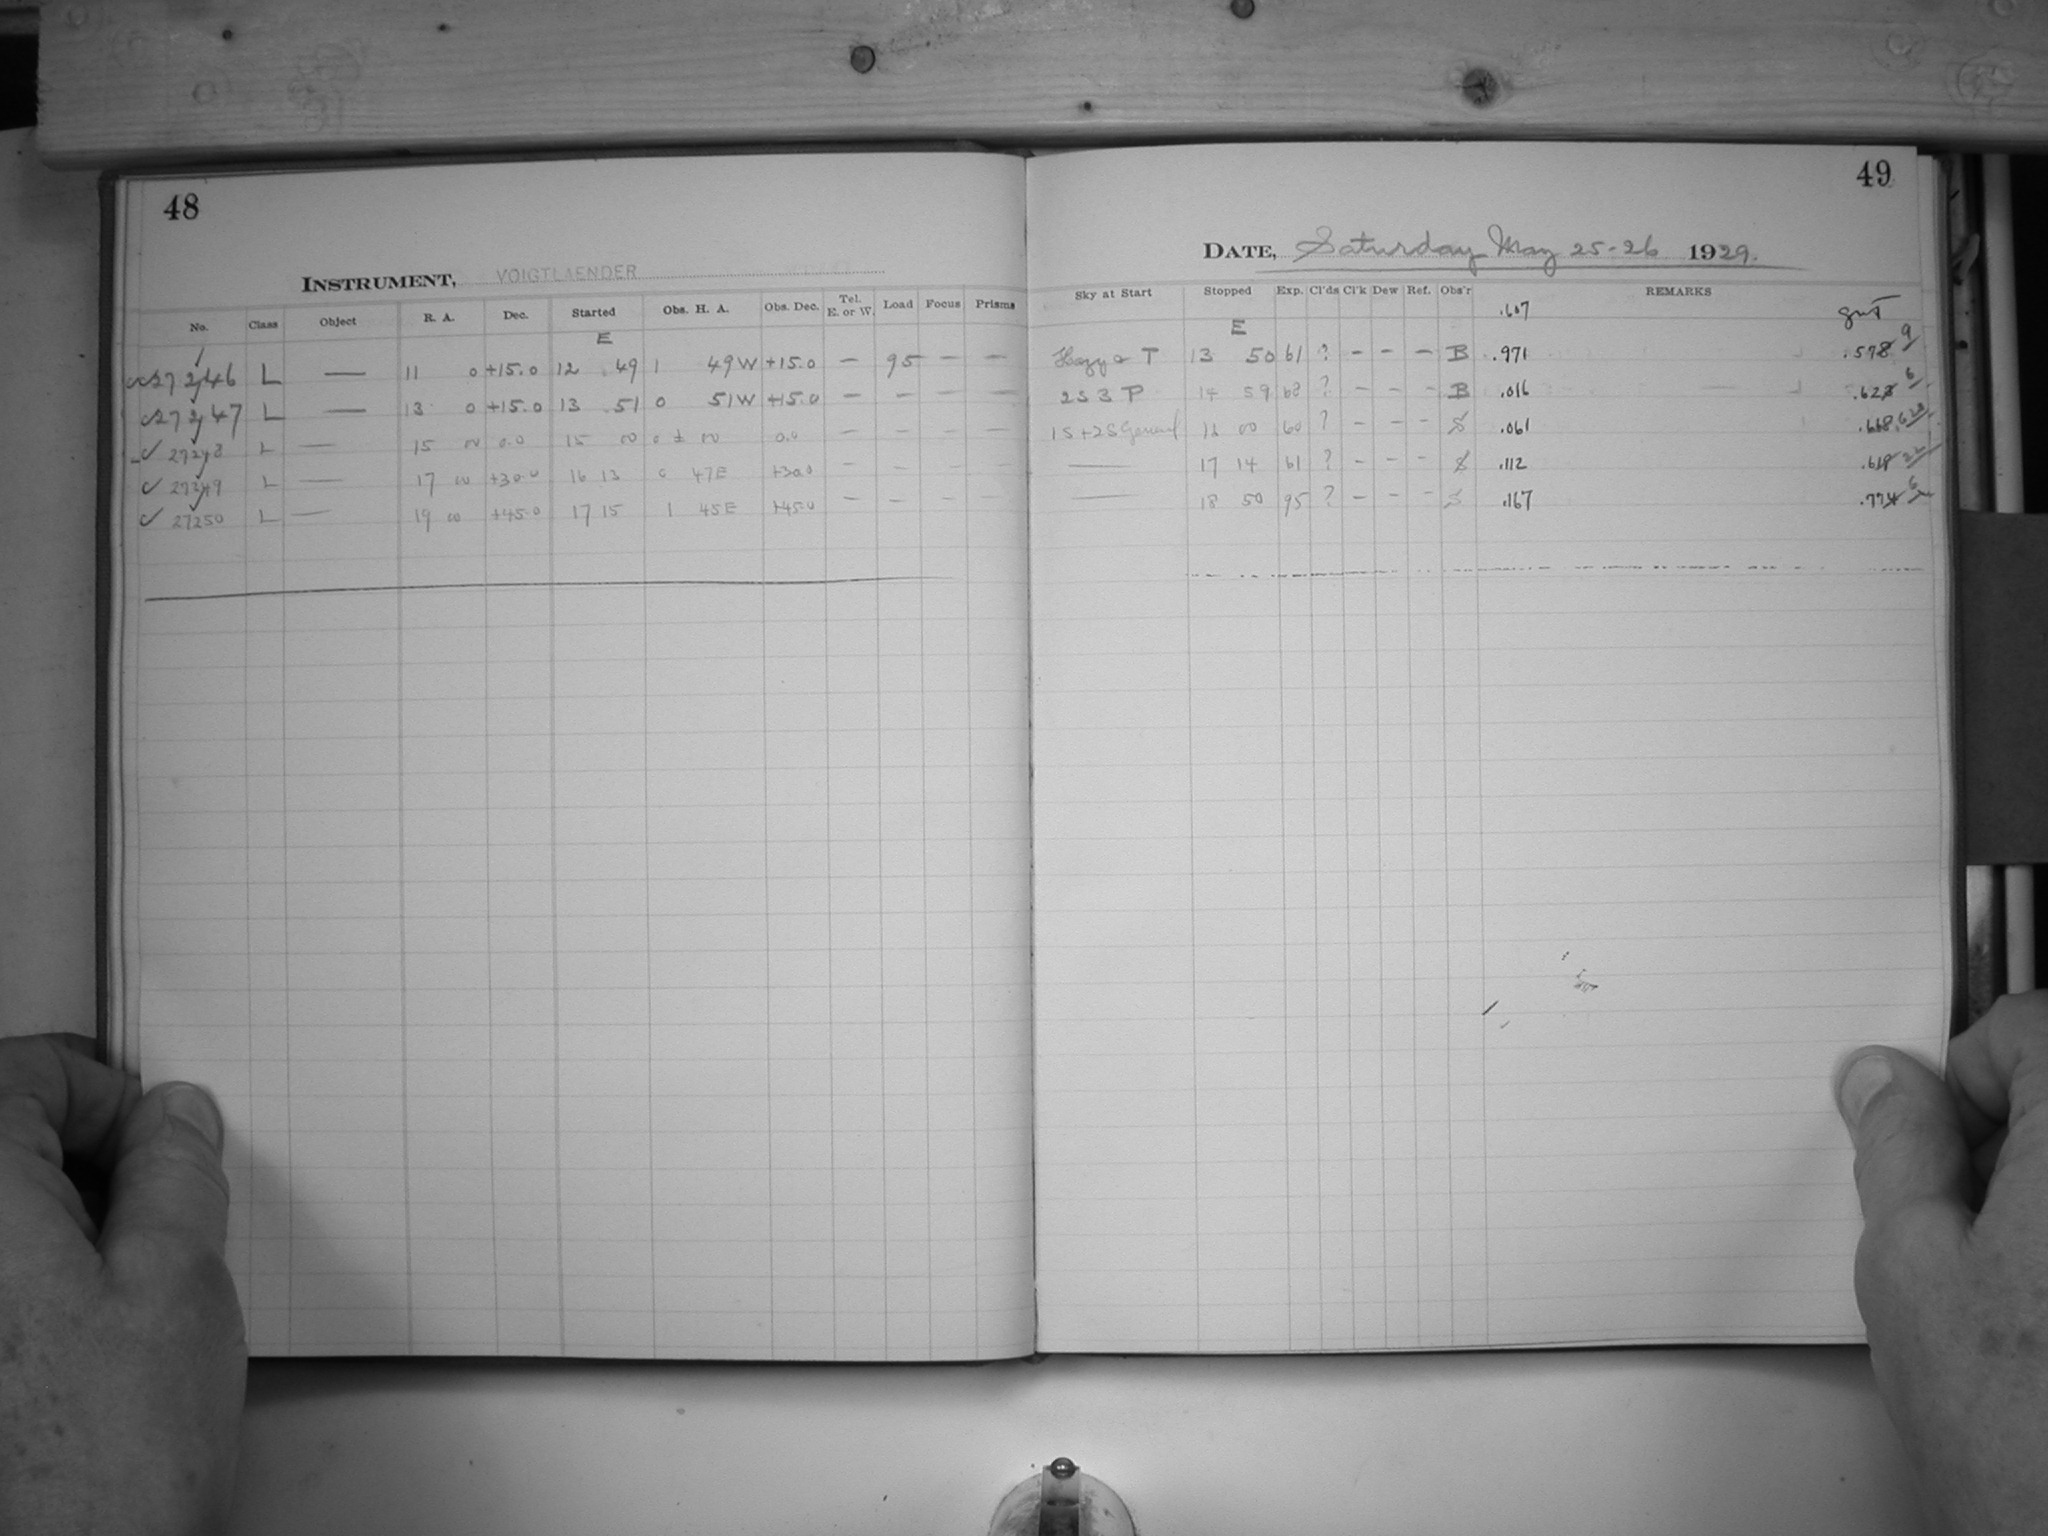 48
INSTRUMENT, VOIGTLAENDER
No. Class Object R. A. Dec. Started Obs. H. A. Obs. Dec. Tel. E. or W. Load Focus Prisms
E
27246 L — 11 0 +15.0 12 49 1 49W +15.0 — 95 — —
27247 L — 13 0 +15.0 13 51 0 51W +15.0 — — — —
27248 L — 15 00 0.0 15 00 0 ± 00 0.0 — — — —
27249 L — 17 00 +30.0 16 13 0 47E +30.0 — — — —
27250 L — 19 00 +45.0 17 15 1 45E +45.0 — — — —
49
DATE, Saturday May 25-26 1929.
Sky at Start Stopped Exp. Cl'ds Cl'k Dew Ref. Obs'r REMARKS
E .607 GMT
Hazy T 13 50 61 ? — — — B .971 .578 9
2S 3 P 14 59 68 ? — — — B .016 .628 6
1S+2S General 16 00 60 ? — — — S .061 .668
— 17 14 61 ? — — — S .112 .618
— 18 50 95 ? — — — S .167 .774